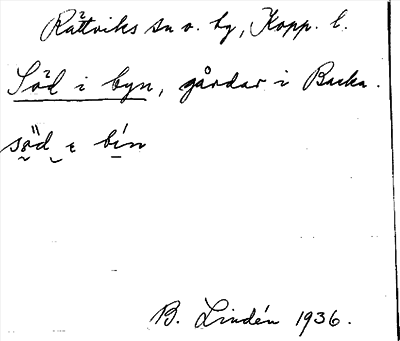 Rättviks sn o. by, Kopp. l.
Söd i byn, gårdar i Backa.
söd ɩ bín
B. Lindén 1936.